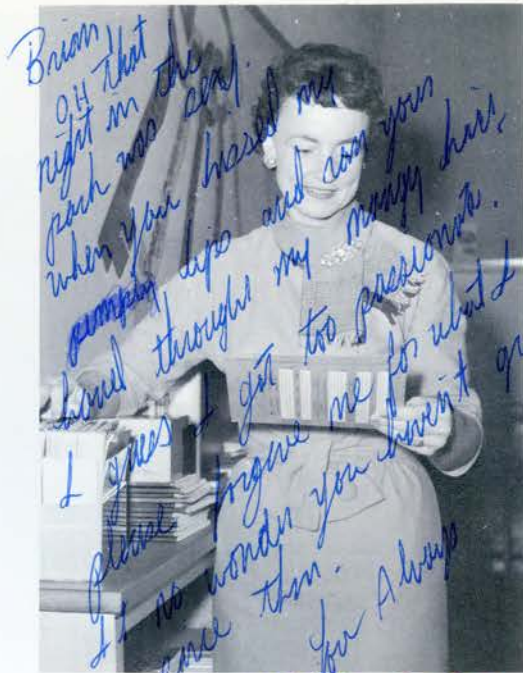 Brian,
OH that
night in the
park was sexy.
when you kissed my
pimply lips and ran your
hand throughs my mangy hair.
I guess I got too passionate.
please forgive me for what I
It no wonder you haven't
since then.
Luv Always